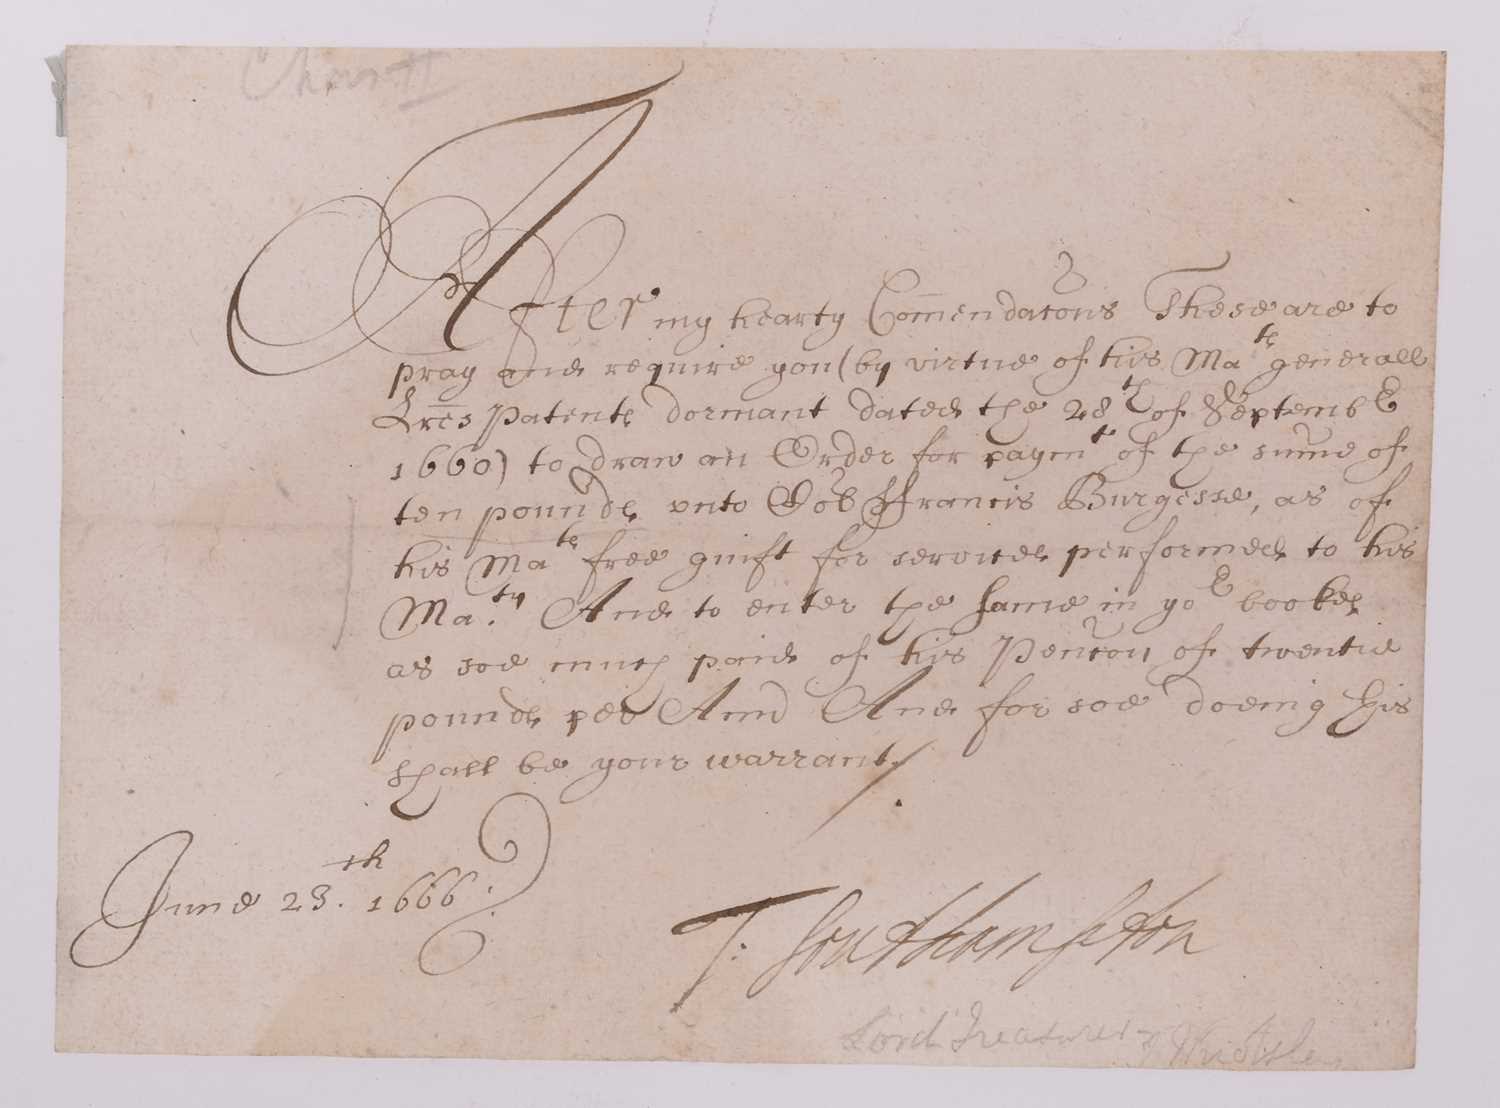 Chas II
After my hearty Com̄endac̃ons These are to
pray and require you (by virtue of his Ma^ts generall
Lr̄es Patents dormant dated the 28^th of September
1660) to draw an Order for paym^t of the sum̃e of
ten pounds vnto ffrancis Burgesse, as of
his Ma^ts free guift for services performed to his
Ma.^ty And to enter the same in yo^r bookes
as soe much paid of his Penc̃on of twentie
pounds per Annũ And for soe doeing this
shall be your warrant./.
June 23.^th 1666:
T: Southampton
Lord Treasurer Wriothsley